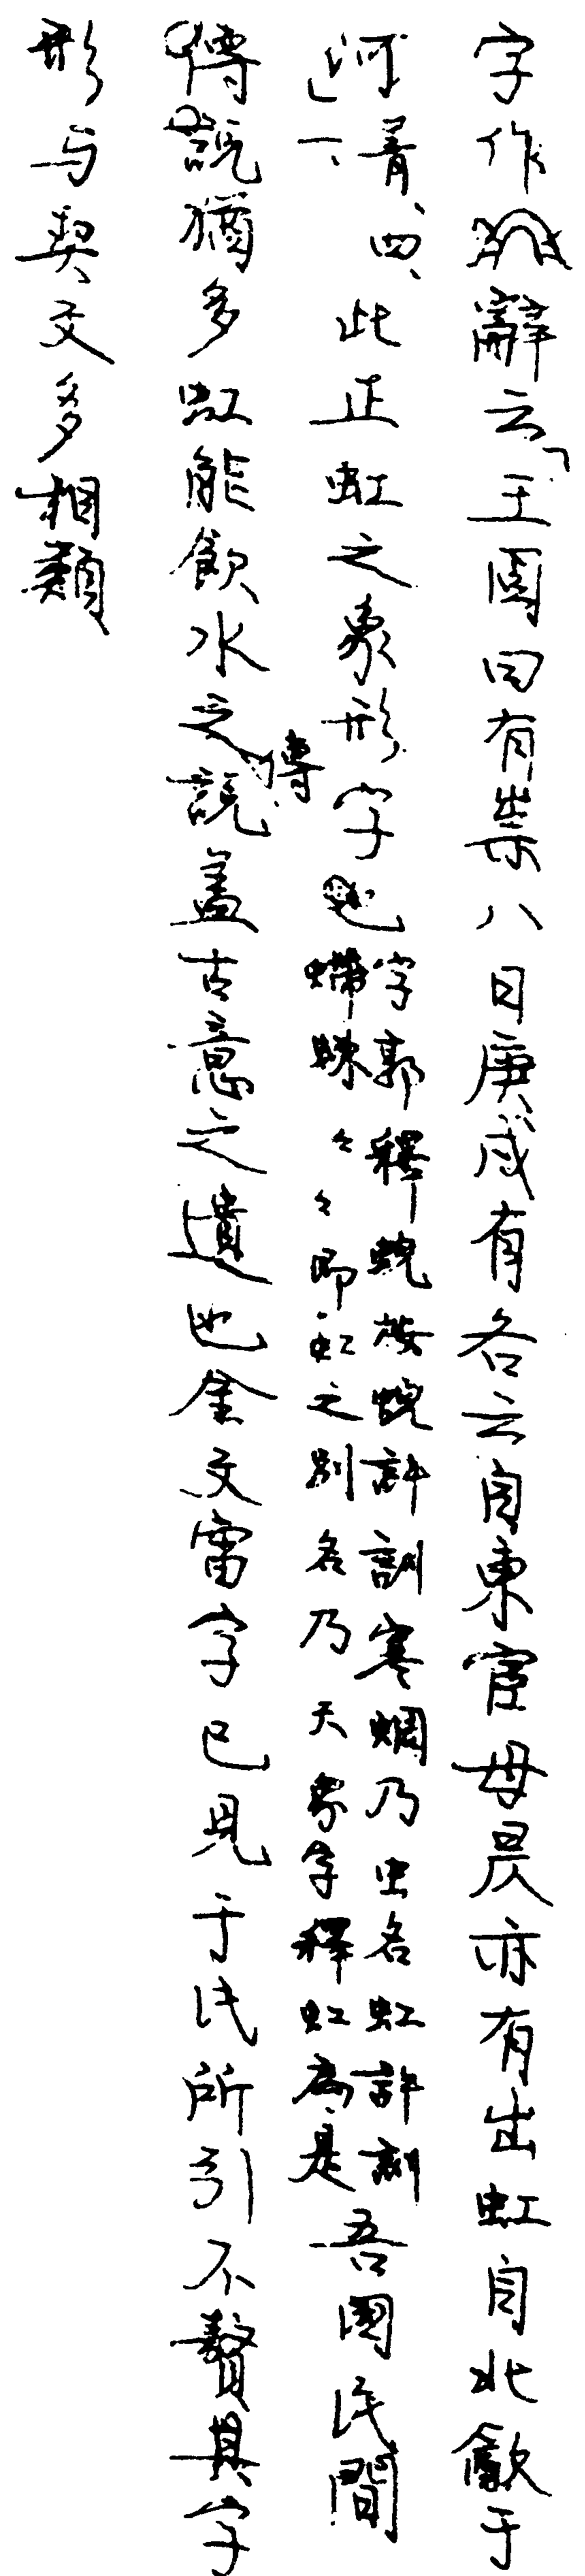 字作辭云「王固曰有祟八日庚戌有各云自東宦母昃亦有出虹自北㱃于
河」菁、四、一、此正虹之象形字也字郭釋蜺按蜺許訓寒蜩乃虫名虹許訓螮蝀々々即虹之別名乃天象字釋虹為是吾國民間
傳說猶多虹能飲水之傳說蓋古意之遺也金文雷字已見于氏所引不贅其字
形与契文多相類